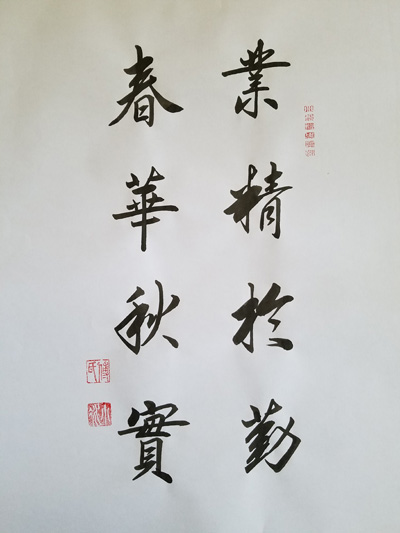 業精於勤
春華秋實